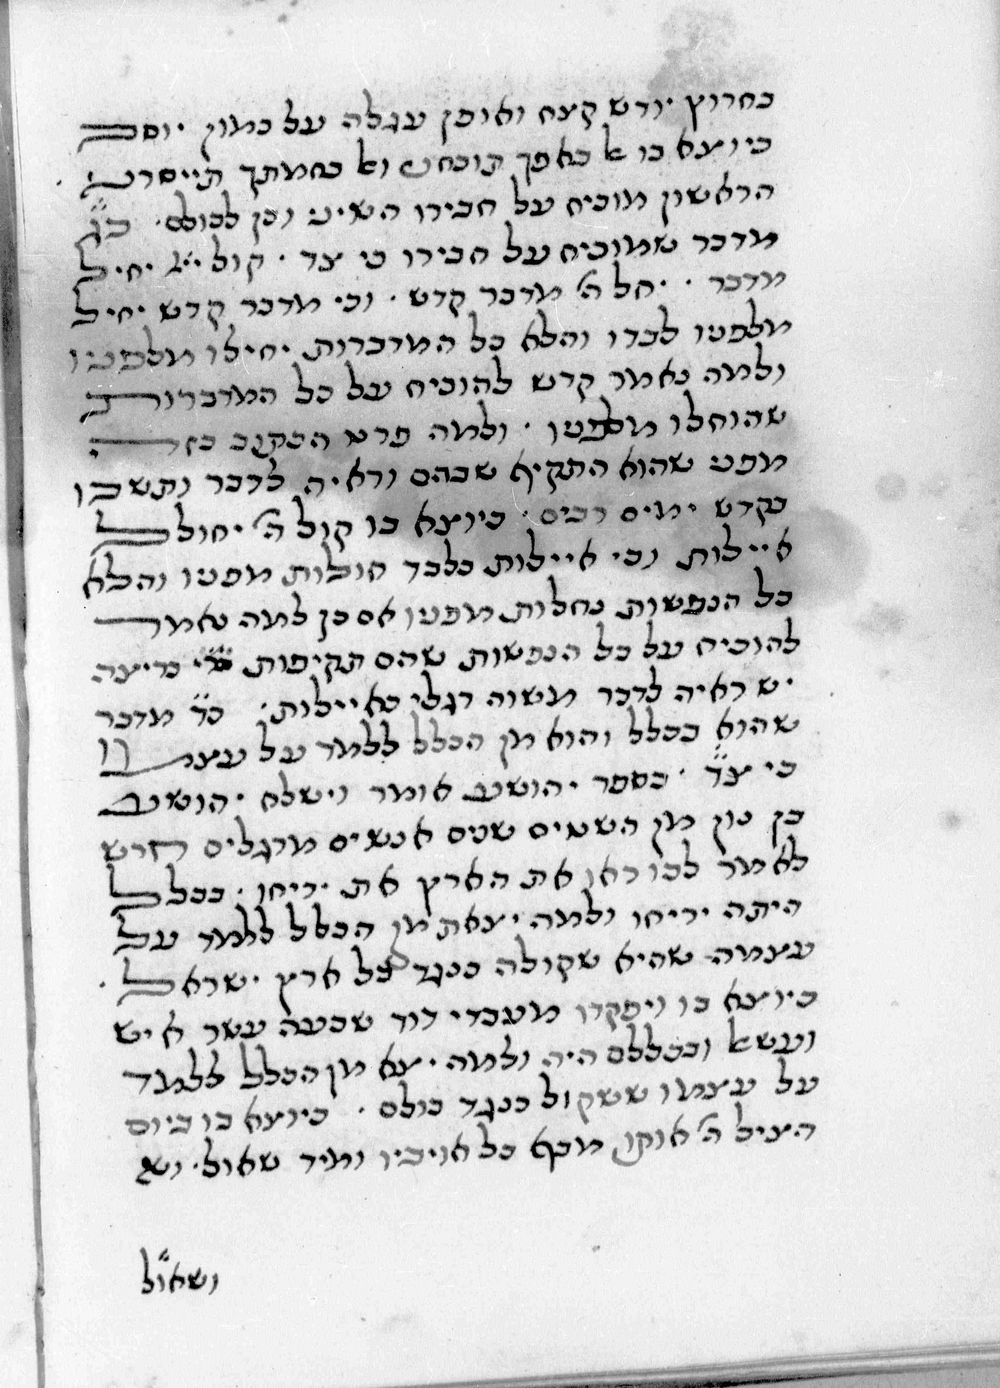 בחרוץ יודש קצח ואופן עגלה על כמון יוסב
כיוצא בו אל באפך תוכחני ואל בחמתך תייסרני
הראשון מוכיח על חבירו השיני וכן לכולם. כד
מדבר שמוכיח על חבירו כי צד. קול יי יחיל
מדבר. יחל ה' מדבר קדש. וכי מדבר קדש יחיל
מלפניו לבדו והלא כל המדברות יחילו מלפניו
ולמה נאמר קדש להוכיח על כל המדברות
שהוחלו מלפניו. ולמה פרט הכתוב בזה
מפני שהוא התקיף שבהם וראיה לדבר ותשבו
בקדש ימים רבים. כיוצא בו קול ה' יחולל
איילות וכי איילות בלבד חולות מפניו והלא
כל הנפשות נחלות מפניו אם כן למה נאמר
להוכיח על כל הנפשות שהם תקיפות בריצה
יש ראיה לדבר משוה רגלי כאיילות. כד מדבר
שהוא בכלל והוא מן הכלל ללמד על עצמו
כי צד. בספר יהושע אומר וישלח יהושע
בן נון מן השטים שנים אנשים מרגלים חרש
לאמר לכו ראו את הארץ את יריחו. בכלל
היתה יריחו ולמה יצאת מן הכלל ללמד על
עצמה שהיא שקולה כנגד כל ארץ ישראל.
כיוצא בו ויפקדו מעבדי דוד שבעה עשר איש
ועשאל ובכללם היה ולמה יצא מן הכלל ללמד
על עצמו ששקול כנגד כולם. כיוצא בו ביום
הציל ה' אותו מכף כל אויביו ומיד שאול. וש
ושאול